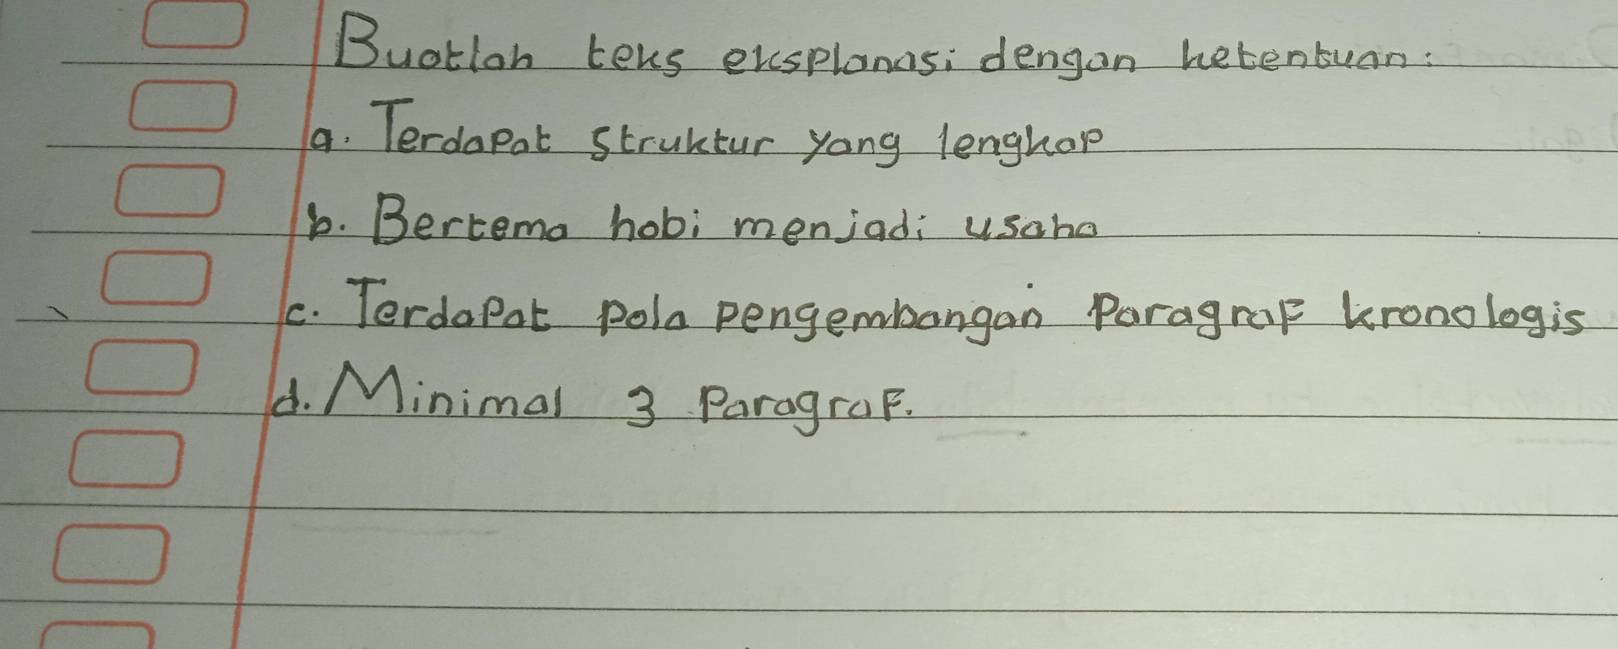 Buatlah teks eksplanasi dengan ketentuan:
a. Terdapat struktur yang lengkap
b. Bertema hobi menjadi usaha
c. Terdapat pola pengembangan Paragraf kronologis
d. Minimal 3 Paragraf.